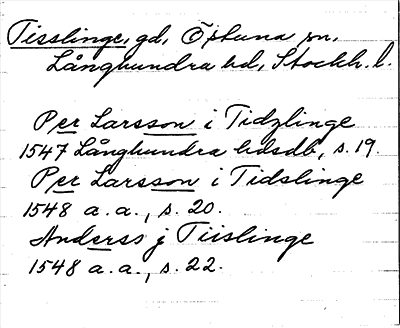 Tisslinge, gd, Östuna sn,
Långhundra hd, Stockh. l.
Per Larsson i Tidzlinge
1547 Långhundra hdsdb, s. 19.
Per Larsson i Tidslinge
1548 a. a., s. 20.
Anderss j Tiislinge
1548 a. a., s. 22.